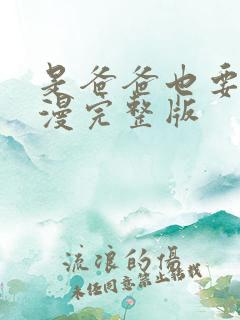 是爸爸也要
漫完整版
流浪的傷
未经同意禁止转载